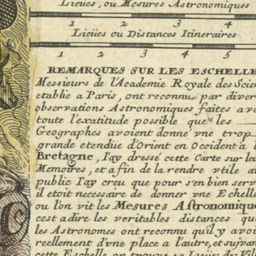 Lieües, ou Mesures Astronomiques
1 2 3 4
Lieües ou Distances Itineraires
1 2 3 4 5
REMARQUES SUR LES ESCHELLE
Messieurs de l'Academie Royale des Scien
etablie a Paris, ont reconnus par diver
observations Astronomiques faites av
toute l'exatitude possible que les
Geographes avoient donné vne trop
grande etendue d'Orient en Occident à l
Bretagne, J'ay dressé cette Carte sur la
Memoires, et a fin de la rendre vtile a
public J'ay creu que pour s'en bien serv
il etoit necessaire de donner vne Echelle
ou l'on vit les Mesures Astronomique
cest adire les veritables distances qu
les Astronomes ont reconnu qu'il y avoi
reellement d'vne place a l'autre, et suivan
cette Eschelle on trouve